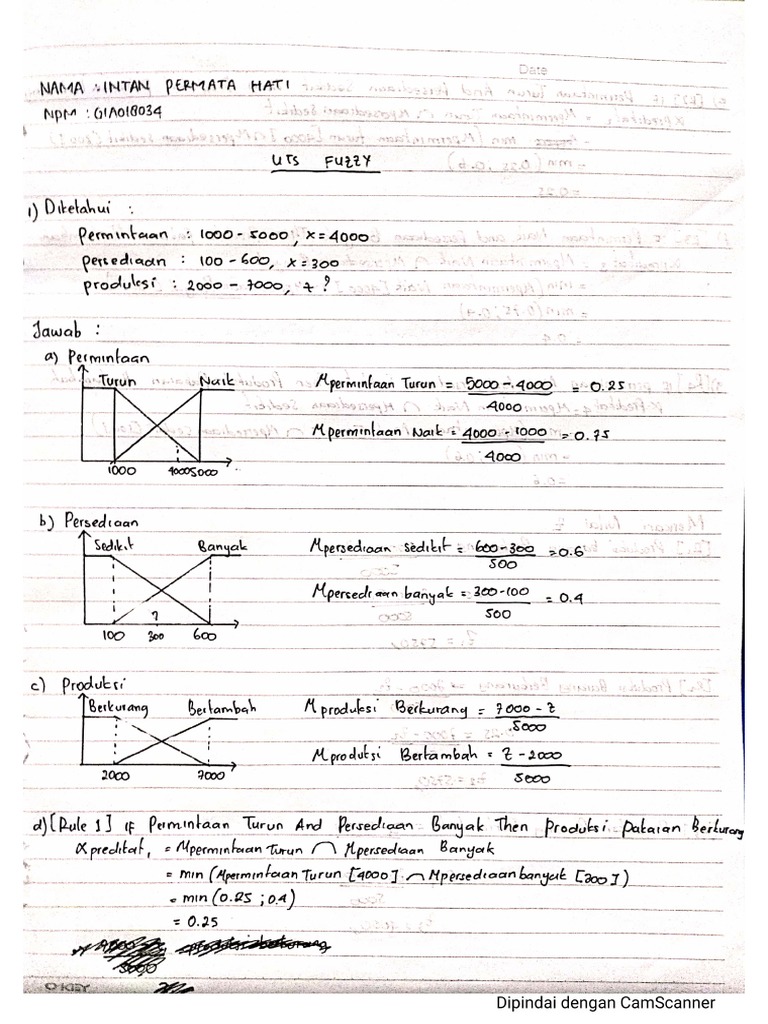 Date
NAMA : INTAN PERMATA HATI
NPM : G1A018034
UTS FUZZY
1) Diketahui :
Permintaan : 1000 - 5000, x = 4000
persediaan : 100 - 600, x = 300
produksi : 2000 - 7000, z ?
Jawab :
a) Permintaan
Turun Naik
1000 4000 5000
Mpermintaan Turun = 5000 - 4000 / 4000 = 0.25
Mpermintaan Naik = 4000 - 1000 / 4000 = 0.75
b) Persediaan
Sedikit Banyak
100 300 600
Mpersediaan sedikit = 600 - 300 / 500 = 0.6
Mpersediaan banyak = 300 - 100 / 500 = 0.4
c) Produksi
Berkurang Bertambah
2000 7000
Mproduksi Berkurang = 7000 - z / 5000
Mproduksi Bertambah = z - 2000 / 5000
d) [Rule 1] IF Permintaan Turun And Persediaan Banyak Then Produksi Pakaian Berkurang
α predikat₁ = Mpermintaan Turun ∩ Mpersediaan Banyak
= min (Mpermintaan Turun [4000] ∩ Mpersediaan banyak [300])
= min (0.25 ; 0.4)
= 0.25
OKEY
Dipindai dengan CamScanner